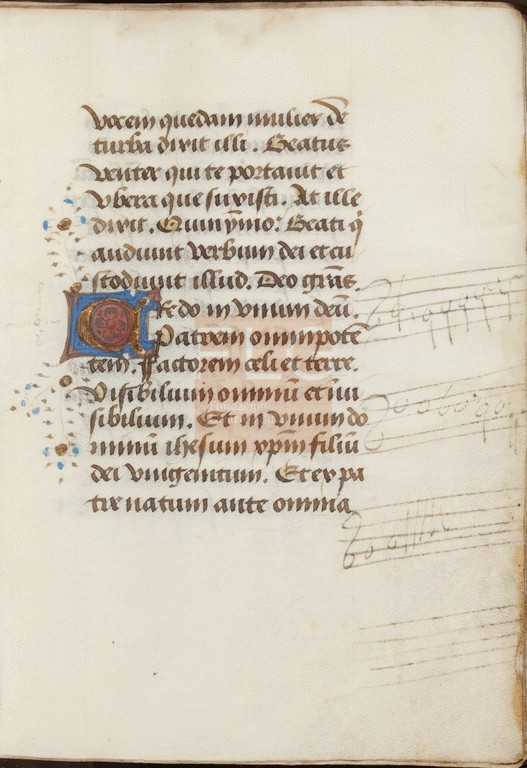 vocem quedam mulier de
turba dixit illi. Beatus
venter qui te portauit et
vbera que suxisti. At ille
dixit. Quinymo: Beati q̇
audiunt verbum dei et cu
stodiunt illud. Deo grãs.
Credo in vnum deũ.
Patrem omnipotẽ
tem. Factorem celi et terre.
Visibilium omniũ et inui
sibilium. Et in vnum do
minũ ihesum xp̃m filiũ
dei vnigenitum. Et ex pa
tre natum ante omnia